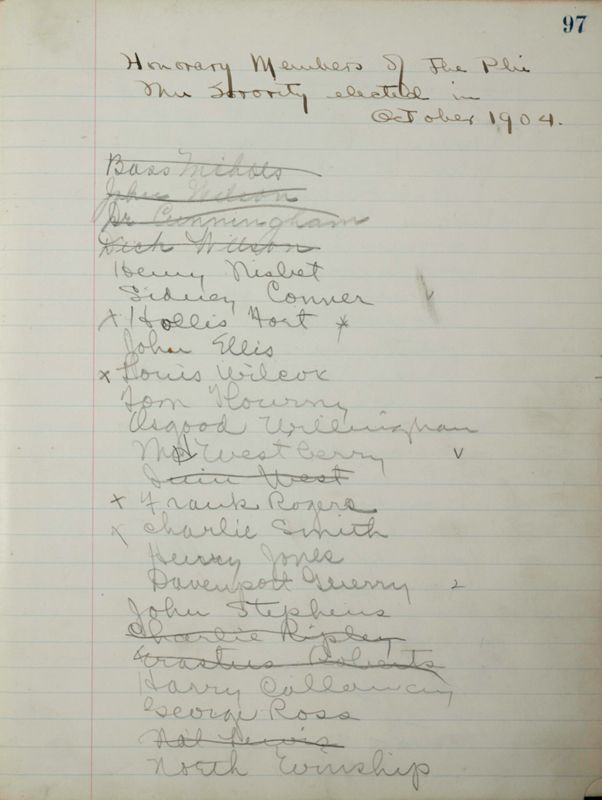 97
Honorary Members of The Phi
Mu Sorority elected in
October 1904.
Bass Nichols
John Wilson
Dr Cunningham
Dick Wilson
Henny Nisbet
Sidney Conner v
x Hollis Hort x
John Ellis
x Louis Wilcox
Tom
Osgood Willingham
Westberry v
West
x Frank Rogers
x Charlie Smith
Henry Jones
Davenport Guerry 2
John Stephens
Charlie Ripley
Erastus Roberts
Harry Callaway
George Ross
Nat Lewis
North Winship